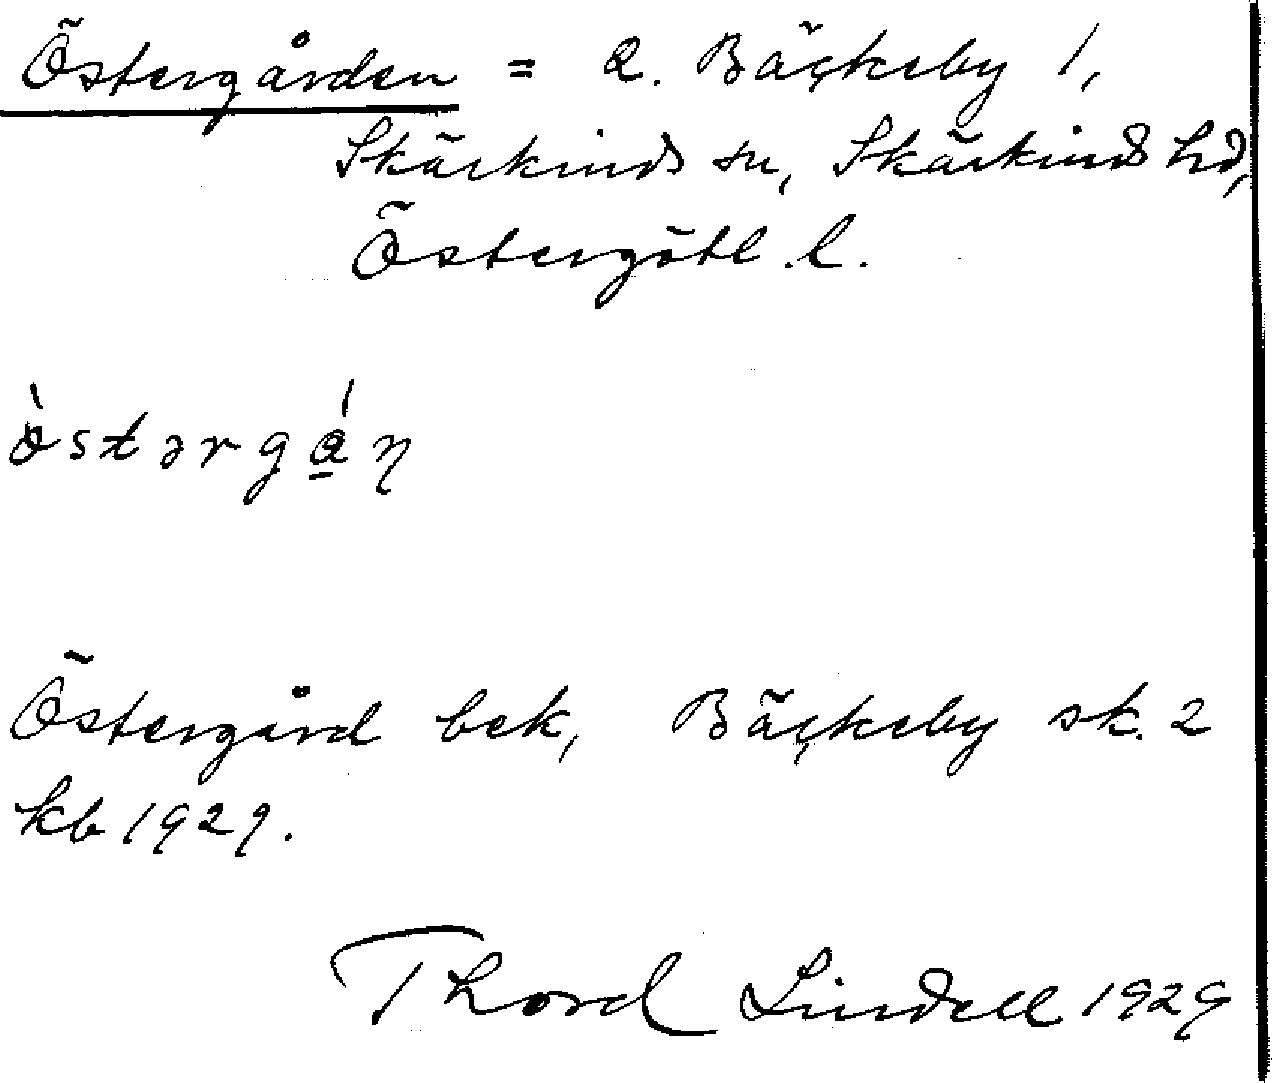 Östergården = 2. Bäckeby 1,
Skärkinds sn, Skärkinds hd,
Östergötl. l.
östərgån
Östergård bek, Bäckeby sk. 2
kb 1929.
Thord Lindell 1929